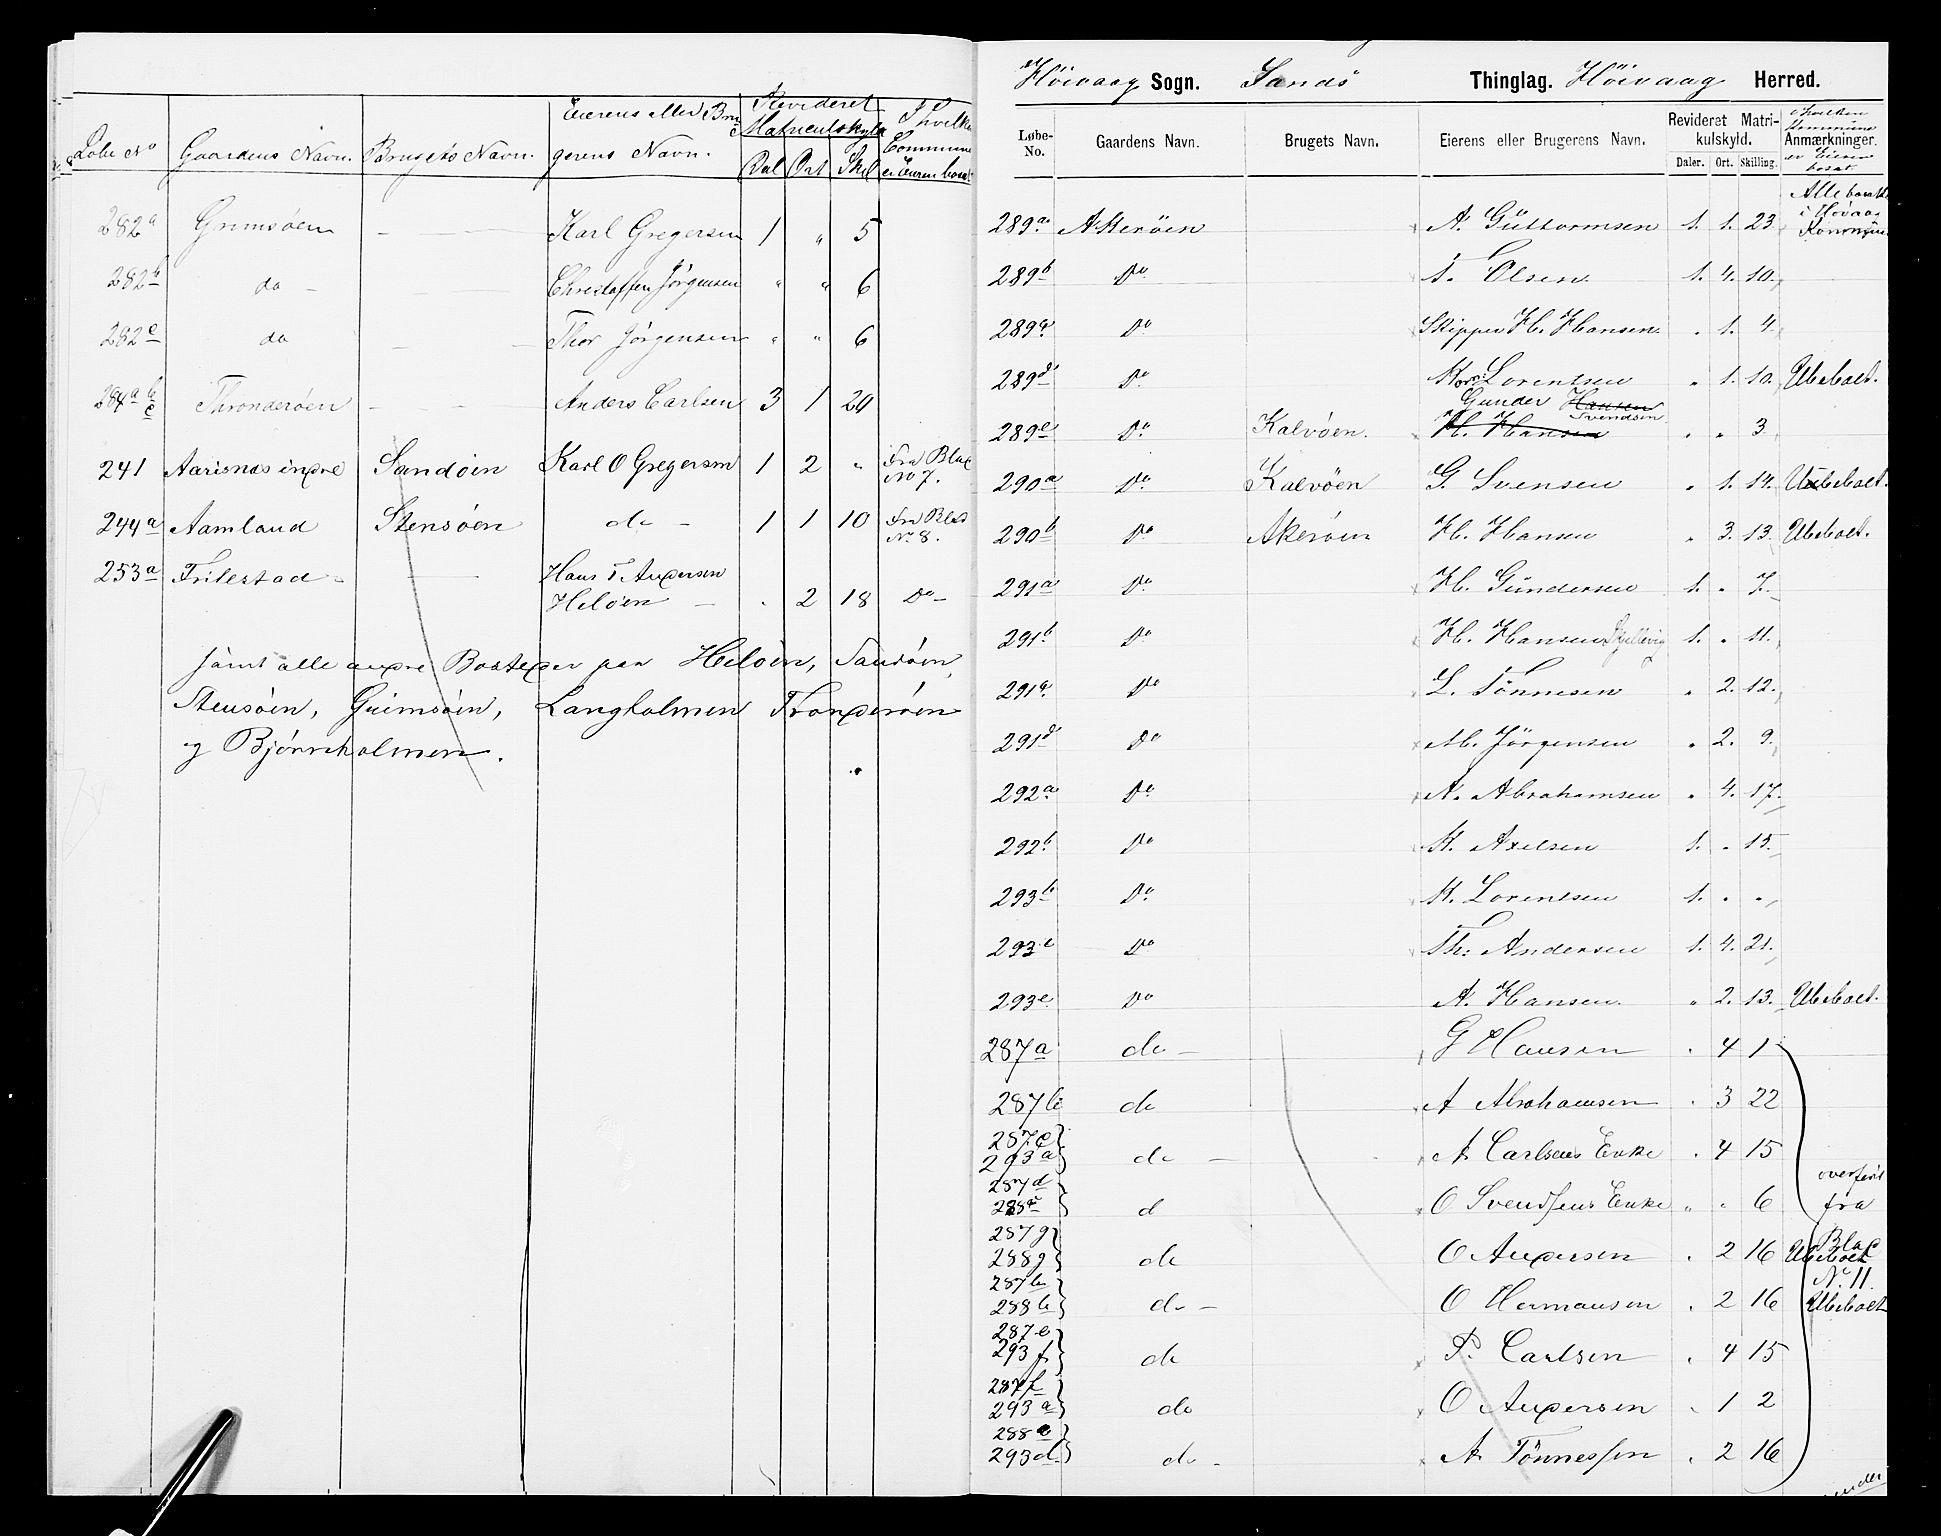 Løbe No Gaardens Navn. Brugets Navn. Eierens eller Bru
gerens Navn. Revideret
Matriculskyld
Dal Ort Skil I hvilken
Commune
er Eieren bosat
282a Grimsøen — — Karl Gregersen 1 " 5
282b do — — Christoffer Jørgensen " " 6
282c do — — Thor Jørgensen " " 6
284a b
c Thronderøen — — Anders Carlsen 3 1 20
241 Aarisnæs indre Sandøen Karl O Gregersen 1 2 " Fra Blad
No 7.
244a Aamland Stensøen do — 1 1 10 Fra Blad
No 8.
253a Trilestad — — Hans T Andersen
Heløen — . 2 18 Do —
samt alle andre Bosteder paa Heløen, Sandøen,
Stensøen, Grimsøen, Langholmen Tronderøen
og Bjørneholmen.
Höivaag Sogn. Sands Thinglag. Höivaag Herred.
Løbe-
No. Gaardens Navn. Brugets Navn. Eierens eller Brugerens Navn. Revideret Matri-
kulskyld.
Daler. Ort. Skilling. i hvilken
Kommune
Anmærkninger.
er Eieren
bosat.
Alle bosatte
i Høvaag
Kommune
289a Akerøen A. Güttormsen 1. 1. 23.
289b Do T. Olsen 1. 4. 10.
289c Do Skipper H. Hansen . 1. 4.
289d Do Korn: Lorentsen " 1. 10. Ubeboet.
Gunder Hansen
Svendsen
289e Do Kalvöen. H. Hansen " " 3
290a Do Kalvöen G. Svensen " 1. 14. Ubeboet.
290b Do Akeröen H. Hansen " 3. 13. Ubeboet.
291a Do H. Gündersen 1. " 7.
291b Do H. Hansen Skjellevig 1. " 11.
291c Do L. Tönnesen " 2. 12.
291d Do M. Jörgensen " 2. 9.
292a Do N. Abrahamsen " 4. 17.
292b Do K. Axelsen 1. " 15.
293b Do K. Lorentsen 1. " "
293c Do Th: Andersen 1. 4. 21.
293e Do A. Hansen " 2. 13. Ubeboet.
287a do — G Hansen . 4 1
287b do A Abrahamsen . 3 22
287c
293a } do — A Carlsens Enke . 4 15
287d
288a } d O Svendsens Enke " " 6 overført
fra
287g
288g } do O Andersen . 2 16 Blad
Ubeboet
No 11
287h
288h } do — O Hermansen . 2 16 Ubeboet
287e
293f } do P. Carlsen . 4 15
287f
293a } do O Andersen . 1 2
288e
293d } do — A Tönnessen . 2 16